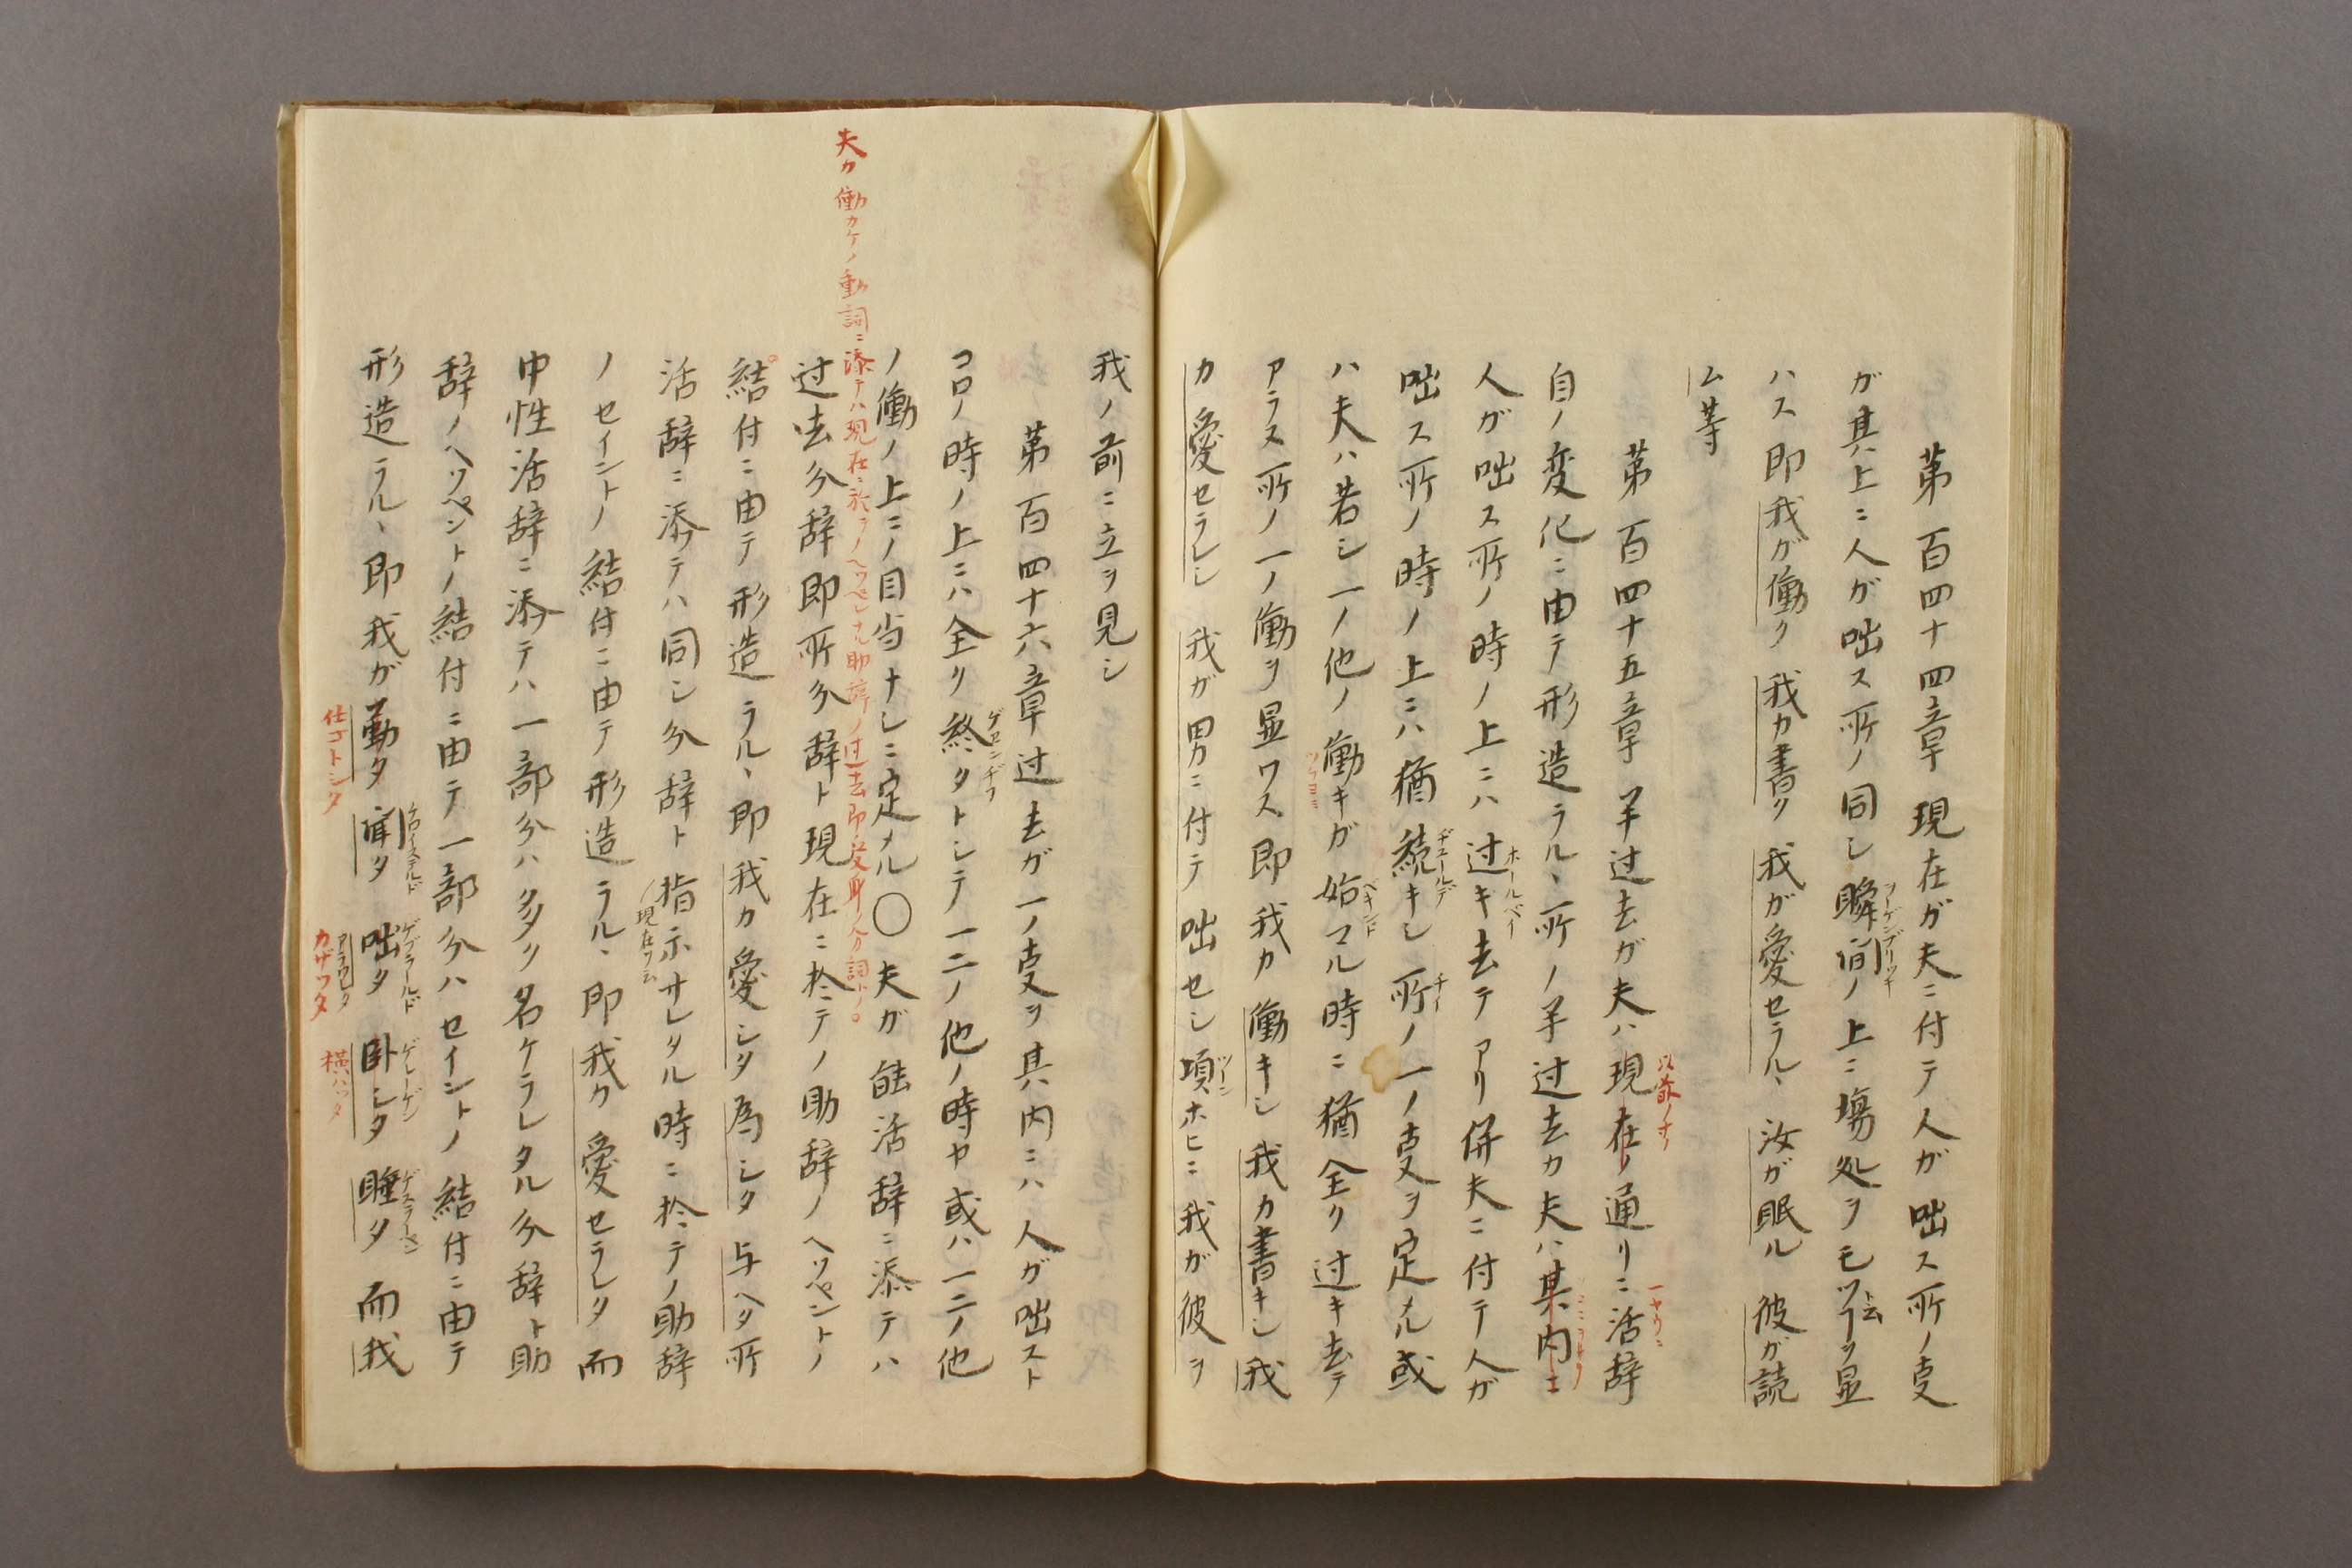 第百四十四章 現在ガ夫ニ付テ人ガ咄ス所ノ叓
ガ其上ニ人ガ咄ス所ノ同シ瞬間ノ上ニ塲処ヲモツヿヲ显
ハス即我ガ働ク 我カ書ク 我ガ愛セラルヽ 汝ガ眠ル 彼ガ読
ム等
第百四十五章 半过去ガ夫ハ現在ノ通リニ活辞
自ノ変化ニ由テ形造ラルヽ所ノ半过去カ夫ハ其内ニ
人ガ咄ス所ノ時ノ上ニハ过キ去テアリ併夫ニ付テ人ガ
咄ス所ノ時ノ上ニハ猶続キシ所ノ一ノ叓ヲ定メル或
ハ夫ハ若シ一ノ他ノ働キガ始マル時ニ猶全ク过キ去テ
アラヌ所ノ一ノ働ヲ显ワス即我カ働キシ 我カ書キシ 我
カ愛セラレシ 我ガ男ニ付テ咄セシ項ホヒニ我ガ彼ヲ
我ノ前ニ立ヲ見シ
第百四十六章 过去ガ一ノ叓ヲ其内ニハ人ガ咄スト
コロノ時ノ上ニハ全ク終タトシテ一二ノ他ノ時ヤ或ハ一二ノ他
ノ働ノ上ニノ目当ナシニ定メル〇夫ガ能活辞ニ添テハ
过去分辞即所分辞ト現在ニ於テノ助辞ノヘツペントノ
結付ニ由テ形造ラルヽ即我カ愛シタ 為シタ 与ヘタ 所
活辞ニ添テハ同シ分辞ト指示サレタル時ニ於テノ助辞
ノセイントノ結付ニ由テ形造ラルヽ即我カ愛セラレタ 而
中性活辞ニ添テハ一部分ハ多ク名ケラレタル分辞ト助
辞ノヘツペントノ結付ニ由テ一部分ハセイントノ結付ニ由テ
形造ラルヽ即我ガ働タ 聞タ 咄タ 臥シタ 睡タ 而我
ヲーゲンブリツキ
ト云
以前ノ
一ヤウニ
ホールベイ
ヂユールデ
チイ
ベギンド
ゲヱンヂフ
夫カ働カケノ動詞ニ添テハ現在ニ於テノヘツペレナル助辞ノ过去即受身ノ分詞トノ。
現在ヲ云
仕ゴトシタ
ゲブラールド
カザツタ
ゲレーゲン
横ハツタ
ゲスラーペン